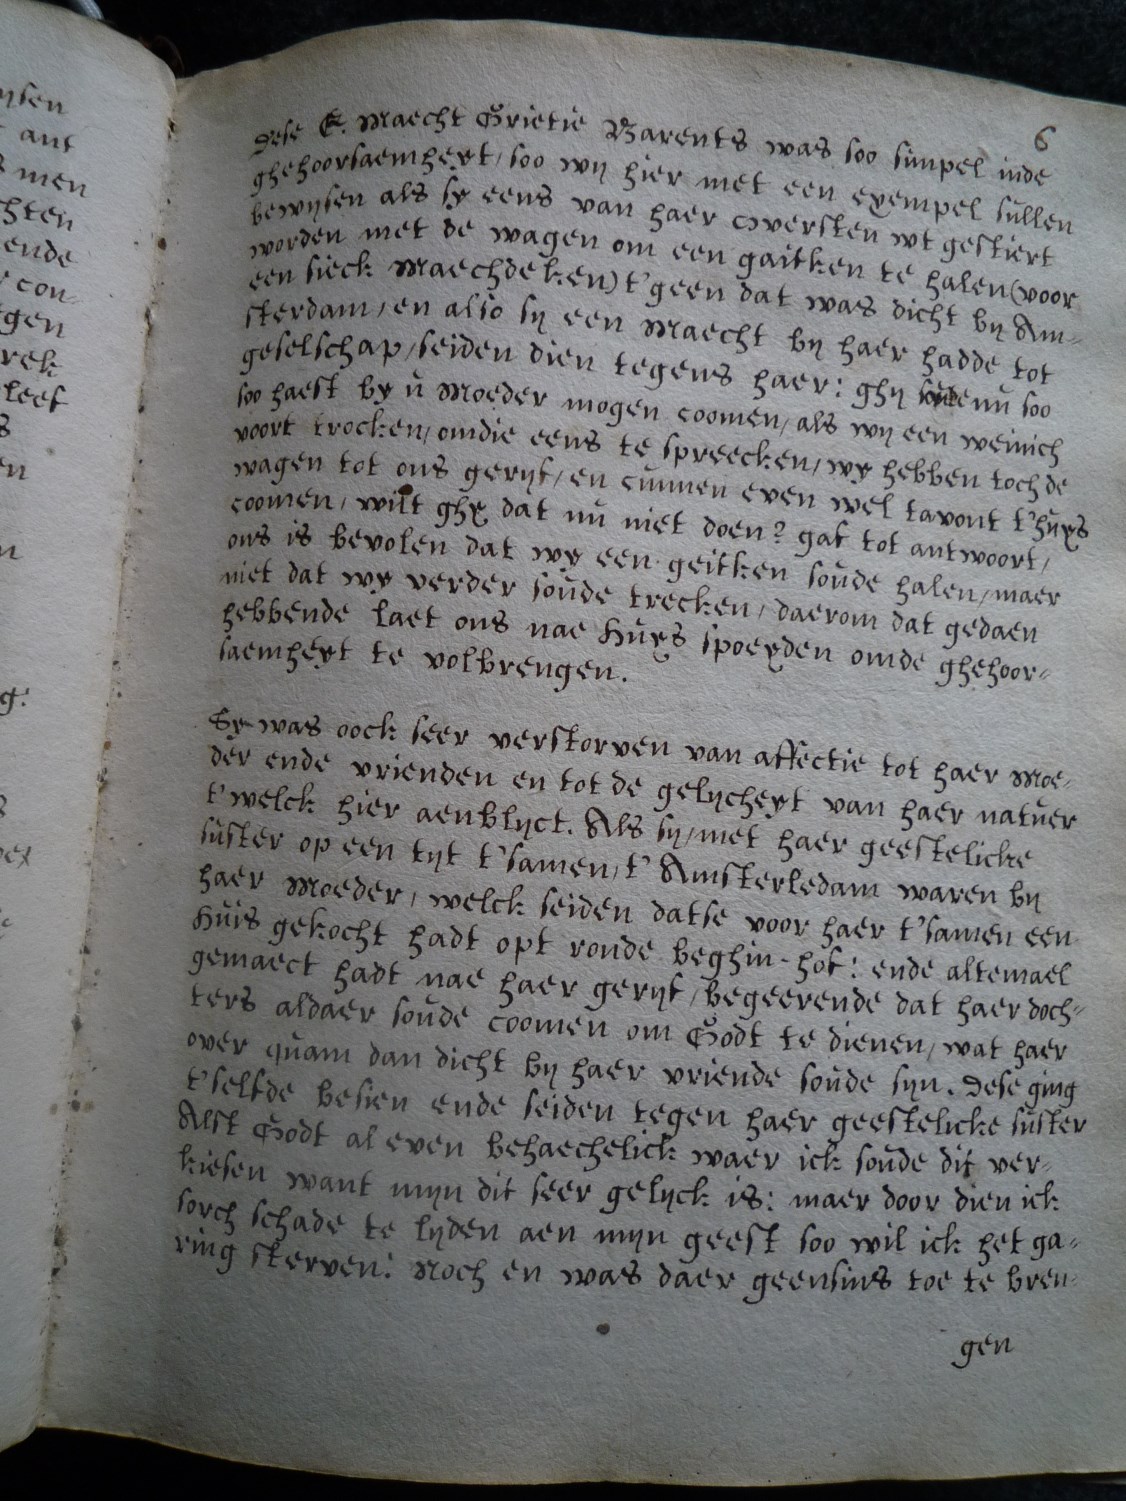 6
Dese E. Maecht Grietie Barents was soo simpel inde
ghehoorsaemheyt, soo wij hier met een exempel sullen
bewijsen als sy eens van haer oversten wt gestiert
worden met de wagen om een gaitken te halen (voor
een sieck Maechdeken) t'geen dat was dicht bij Am-
sterdam, en also sij een Maecht bij haer hadde tot
geselschap, seiden dien tegens haer: ghij soude nu soo
soo haest by u Moeder mogen coomen, als wij een weinich
voort trocken, omdie eens te spreecken, wy hebben toch de
wagen tot ons gerijf, en cunnen even wel tavont t'huys
coomen, wilt ghy dat nu niet doen? gaf tot antwoort,
ons is bevolen dat wy een geitken soude halen, maer
niet dat wy verder soude trecken, daerom dat gedaen
hebbende laet ons nae huys spoeyden omde ghehoor-
saemheyt te volbrengen.
Sy was oock seer verstorven van affectie tot haer Moe-
der ende vrienden en tot de gelijcheyt van haer natuer
t'welck hier aenblijct. Als sij, met haer geestelicke
suster op een tijt t'samen, t'Amsterledam waren bij
haer Moeder, welck seiden datse voor haer t'samen een
Huis gekocht hadt opt ronde beghin-hof: ende altemael
gemaect hadt nae haer gerijf, begeerende dat haer doch-
ters aldaer soude coomen om Godt te dienen, wat haer
over quam dan dicht bij haer vriende soude sijn. Dese ging
t'selfde besien ende seiden tegen haer geestelicke suster
Alst Godt al even behaechelick waer ick soude dit ver-
kiesen want mijn dit seer gelijck is: maer door dien ick
sorch schade te lijden aen mijn geest soo wil ick het ga-
ring sterven: Noch en was daer geensins toe te bren-
gen